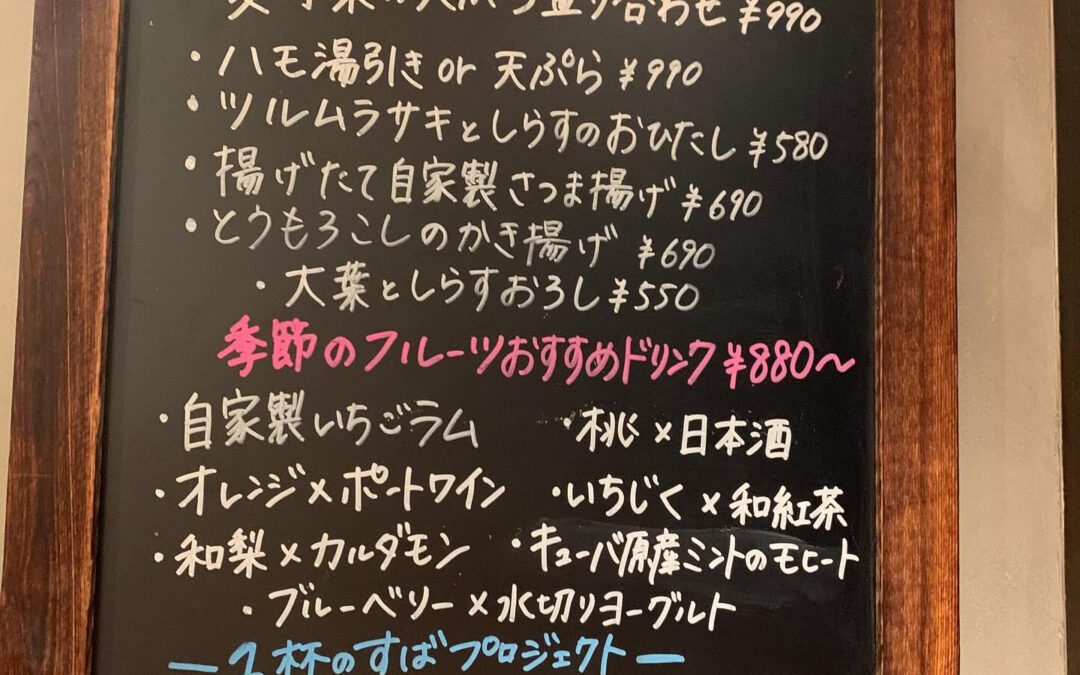 の天ぷら盛り合わせ ¥990
・ハモ湯引き or 天ぷら ¥990
・ツルムラサキとしらすのおひたし ¥580
・揚げたて自家製さつま揚げ ¥690
・とうもろこしのかき揚げ ¥690
・大葉としらすおろし ¥550
季節のフルーツおすすめドリンク ¥880〜
・自家製いちごラム ・桃×日本酒
・オレンジ×ポートワイン ・いちじく×和紅茶
・和梨×カルダモン ・キューバ原産ミントのモヒート
・ブルーベリー×水切りヨーグルト
杯のすばプロジェクト ー